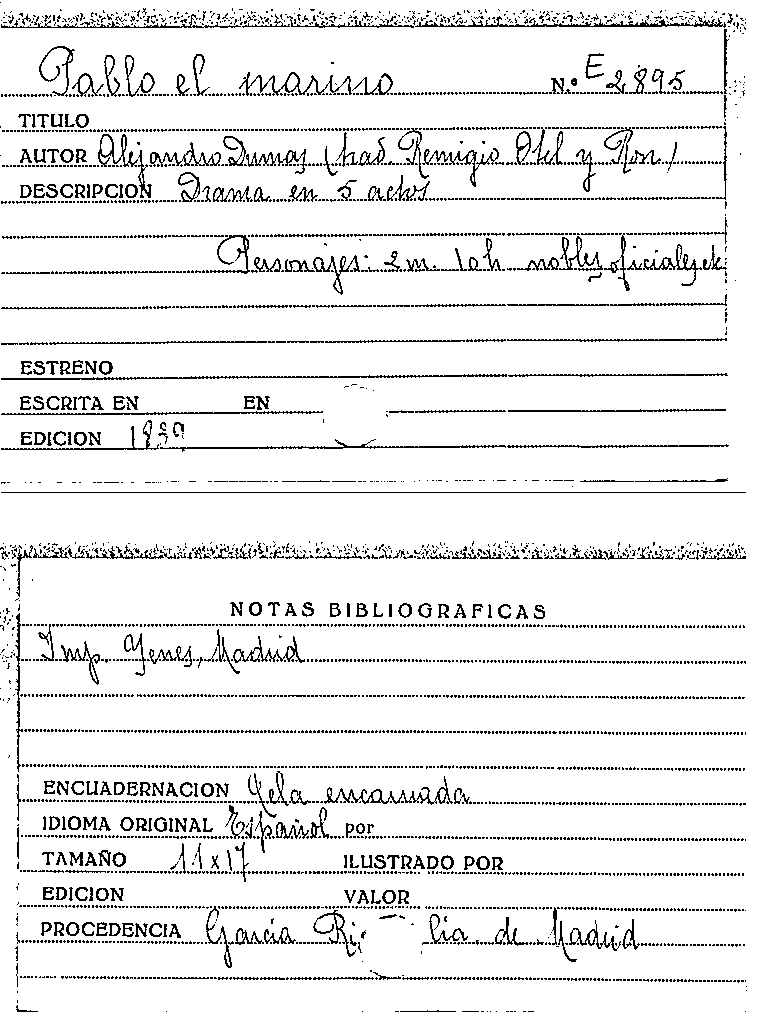 Pablo el marino N.º E 2,895
TITULO
AUTOR Alejandro Dumas (trad. Remigio Otel y Ron)
DESCRIPCION Drama en 5 actos
Personajes: 2 m. 10 h nobles, oficiales, etc
ESTRENO
ESCRITA EN EN
EDICION 1839
NOTAS BIBLIOGRAFICAS
Imp. Yenes, Madrid
ENCUADERNACION Tela encarnada
IDIOMA ORIGINAL Español por
TAMAÑO 11 x 17 ILUSTRADO POR
EDICION VALOR
PROCEDENCIA García de Madrid